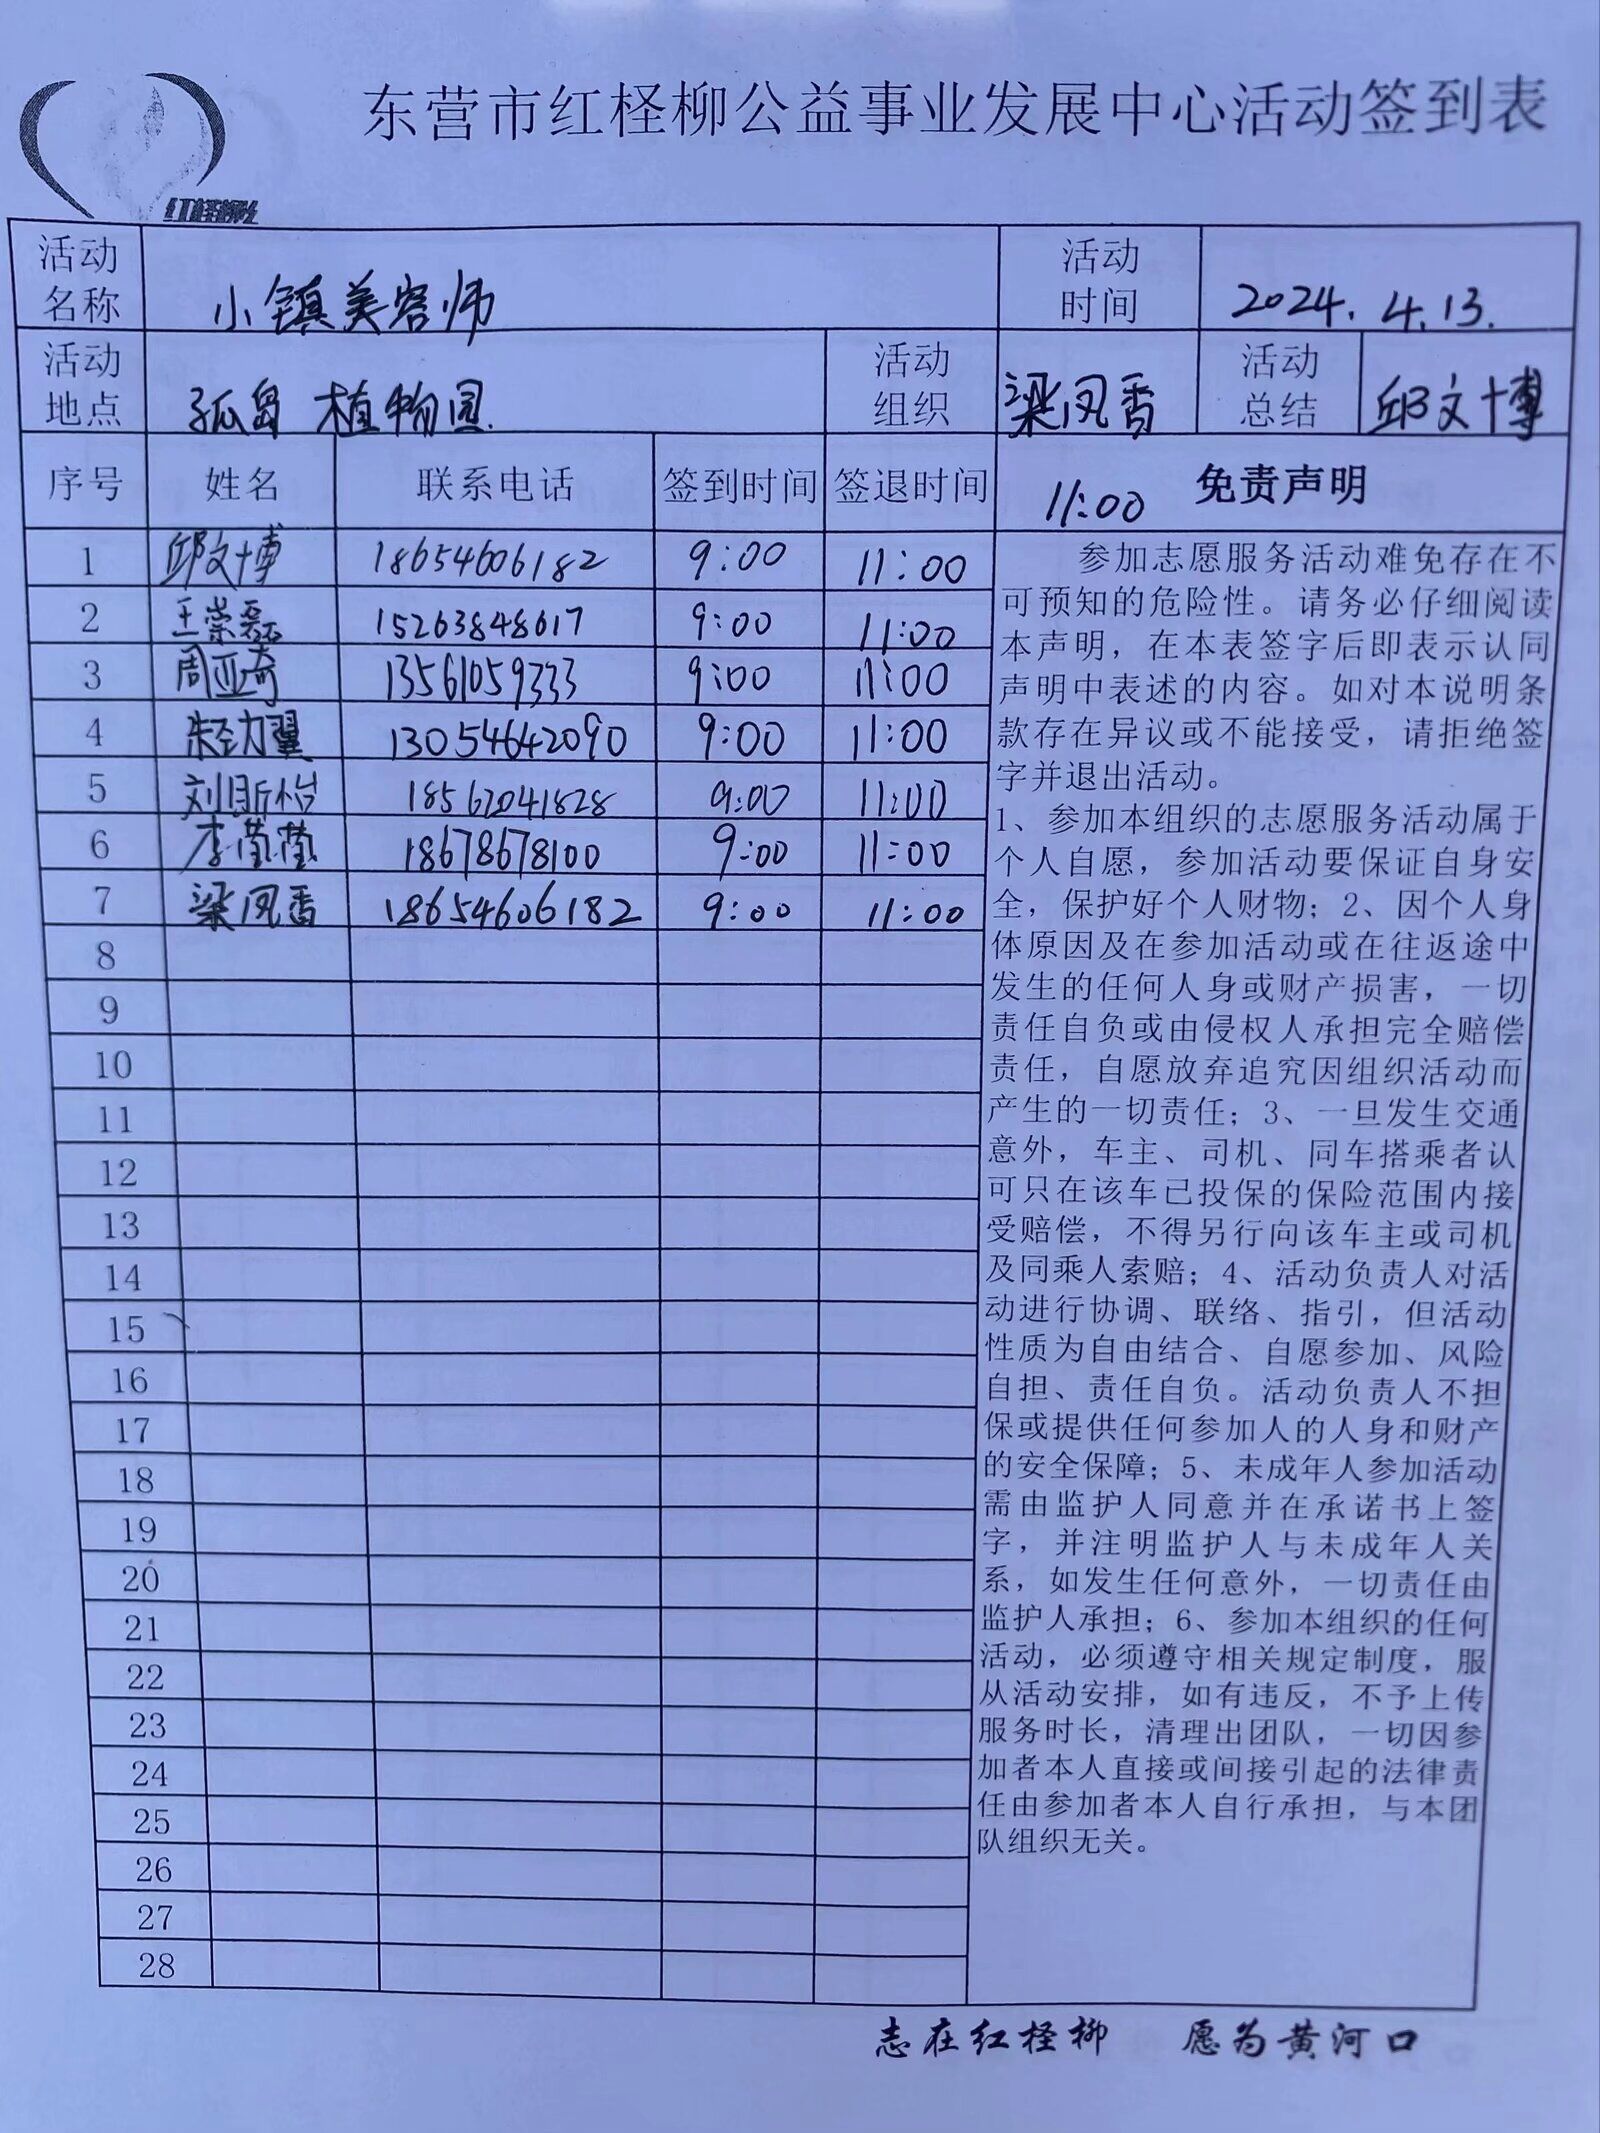 东营市红柽柳公益事业发展中心活动签到表
红柽柳
活动名称 小镇美容师 活动时间 2024.4.13.
活动地点 孤岛 植物园. 活动组织 梁凤香 活动总结 邱文博
序号 姓名 联系电话 签到时间 签退时间 11:00 免责声明
1 邱文博 18654606182 9:00 11:00
2 王崇磊 15263848617 9:00 11:00
3 周亚奇 13561059333 9:00 11:00
4 13054642090 9:00 11:00
5 刘昕怡 18562041828 9:00 11:00
6 李莹莹 18678678100 9:00 11:00
7 梁凤香 18654606182 9:00 11:00
8
9
10
11
12
13
14
15
16
17
18
19
20
21
22
23
24
25
26
27
28
参加志愿服务活动难免存在不
可预知的危险性。请务必仔细阅读
本声明，在本表签字后即表示认同
声明中表述的内容。如对本说明条
款存在异议或不能接受，请拒绝签
字并退出活动。
1、参加本组织的志愿服务活动属于
个人自愿，参加活动要保证自身安
全，保护好个人财物；2、因个人身
体原因及在参加活动或在往返途中
发生的任何人身或财产损害，一切
责任自负或由侵权人承担完全赔偿
责任，自愿放弃追究因组织活动而
产生的一切责任；3、一旦发生交通
意外，车主、司机、同车搭乘者认
可只在该车已投保的保险范围内接
受赔偿，不得另行向该车主或司机
及同乘人索赔；4、活动负责人对活
动进行协调、联络、指引，但活动
性质为自由结合、自愿参加、风险
自担、责任自负。活动负责人不担
保或提供任何参加人的人身和财产
的安全保障；5、未成年人参加活动
需由监护人同意并在承诺书上签
字，并注明监护人与未成年人关
系，如发生任何意外，一切责任由
监护人承担；6、参加本组织的任何
活动，必须遵守相关规定制度，服
从活动安排，如有违反，不予上传
服务时长，清理出团队，一切因参
加者本人直接或间接引起的法律责
任由参加者本人自行承担，与本团
队组织无关。
志在红柽柳 愿为黄河口